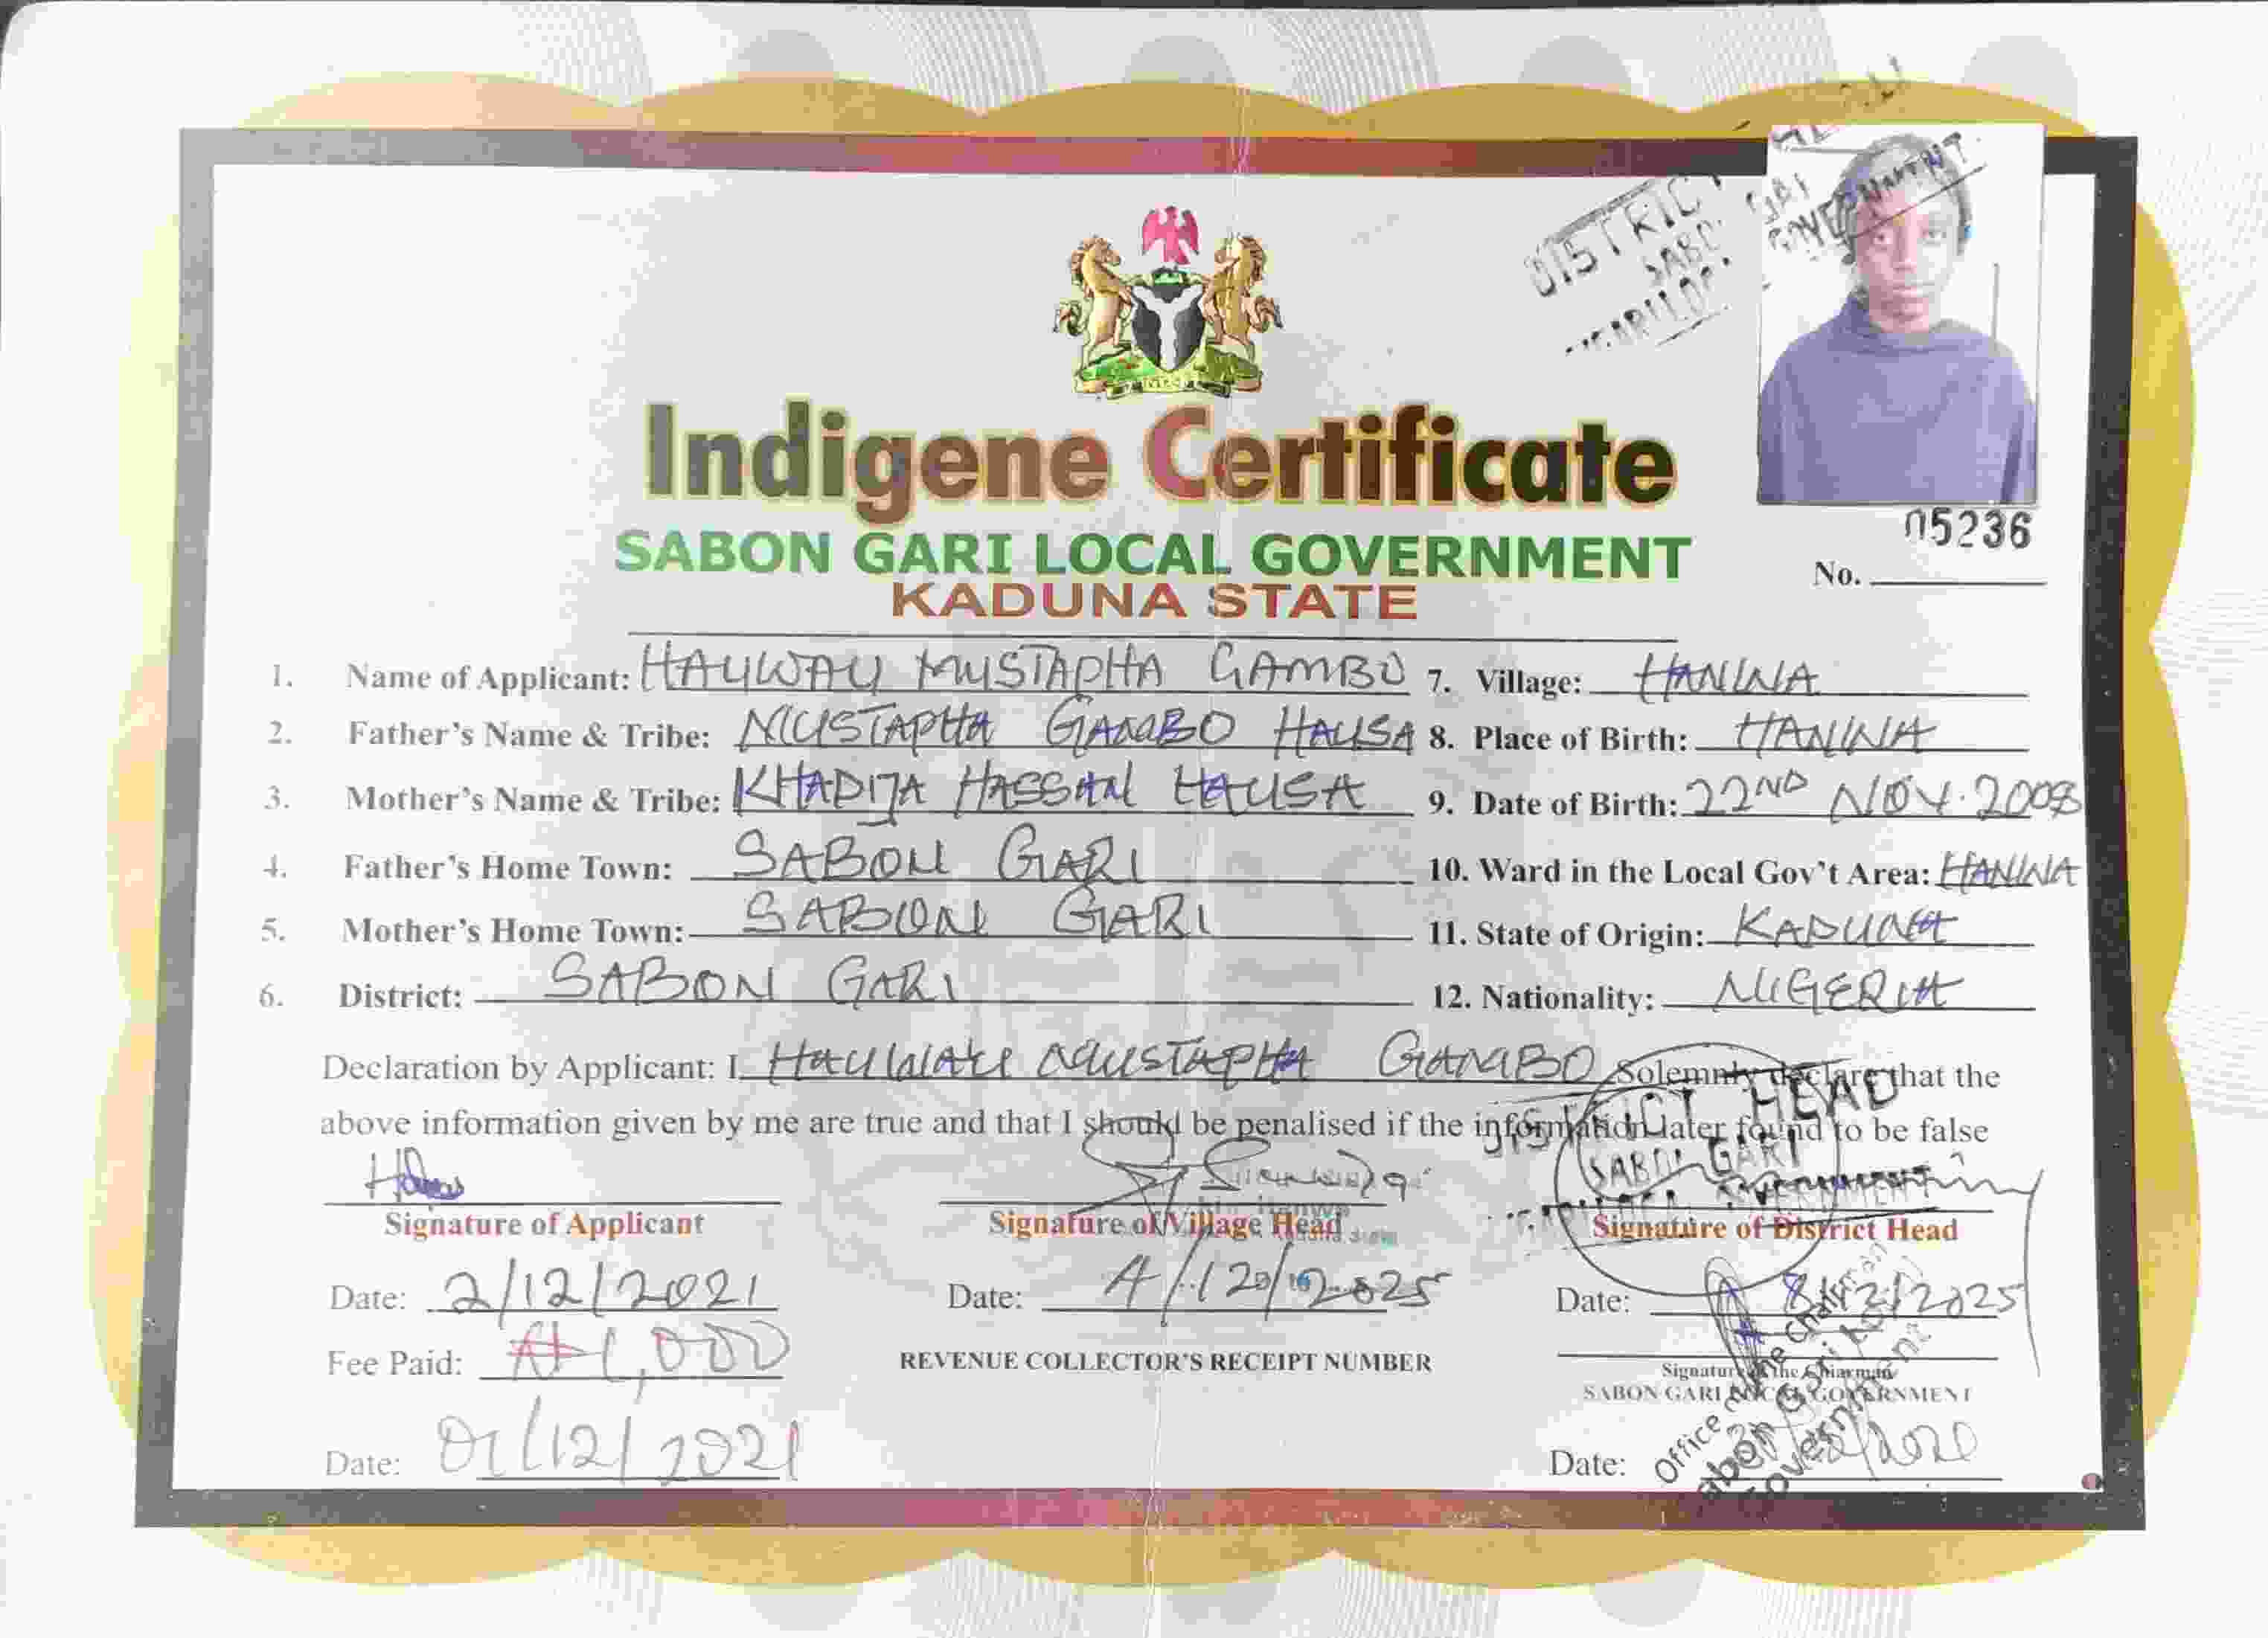 DISTRICT
GOVERNMENT
Indigene Certificate
SABON GARI LOCAL GOVERNMENT
KADUNA STATE
05236
No.
1. Name of Applicant: HAUWAU MUSTAPHA GAMBO
7. Village: HANWA
2. Father's Name & Tribe: MUSTAPHA GAMBO HAUSA
8. Place of Birth: HANWA
3. Mother's Name & Tribe: KHADIJA HASSAN HAUSA
9. Date of Birth: 22ND NOV. 2008
4. Father's Home Town: SABON GARI
10. Ward in the Local Gov't Area: HANWA
5. Mother's Home Town: SABON GARI
11. State of Origin: KADUNA
6. District: SABON GARI
12. Nationality: NIGERIA
Declaration by Applicant: I HAUWAU MUSTAPHA GAMBO Solemnly declare that the
above information given by me are true and that I should be penalised if the information later found to be false
DISTRICT HEAD
SABON GARI
Signature of Applicant
Signature of Village Head
Signature of District Head
Date: 2/12/2021
Date: 4/12/2025
Date: 8/12/2025
Fee Paid: ₦1,000
REVENUE COLLECTOR'S RECEIPT NUMBER
Signature of the Chiarman
SABON GARI LOCAL GOVERNMENT
Date: 01/12/2021
Date:
Office of the Chairman
Sabon Gari Local
Government